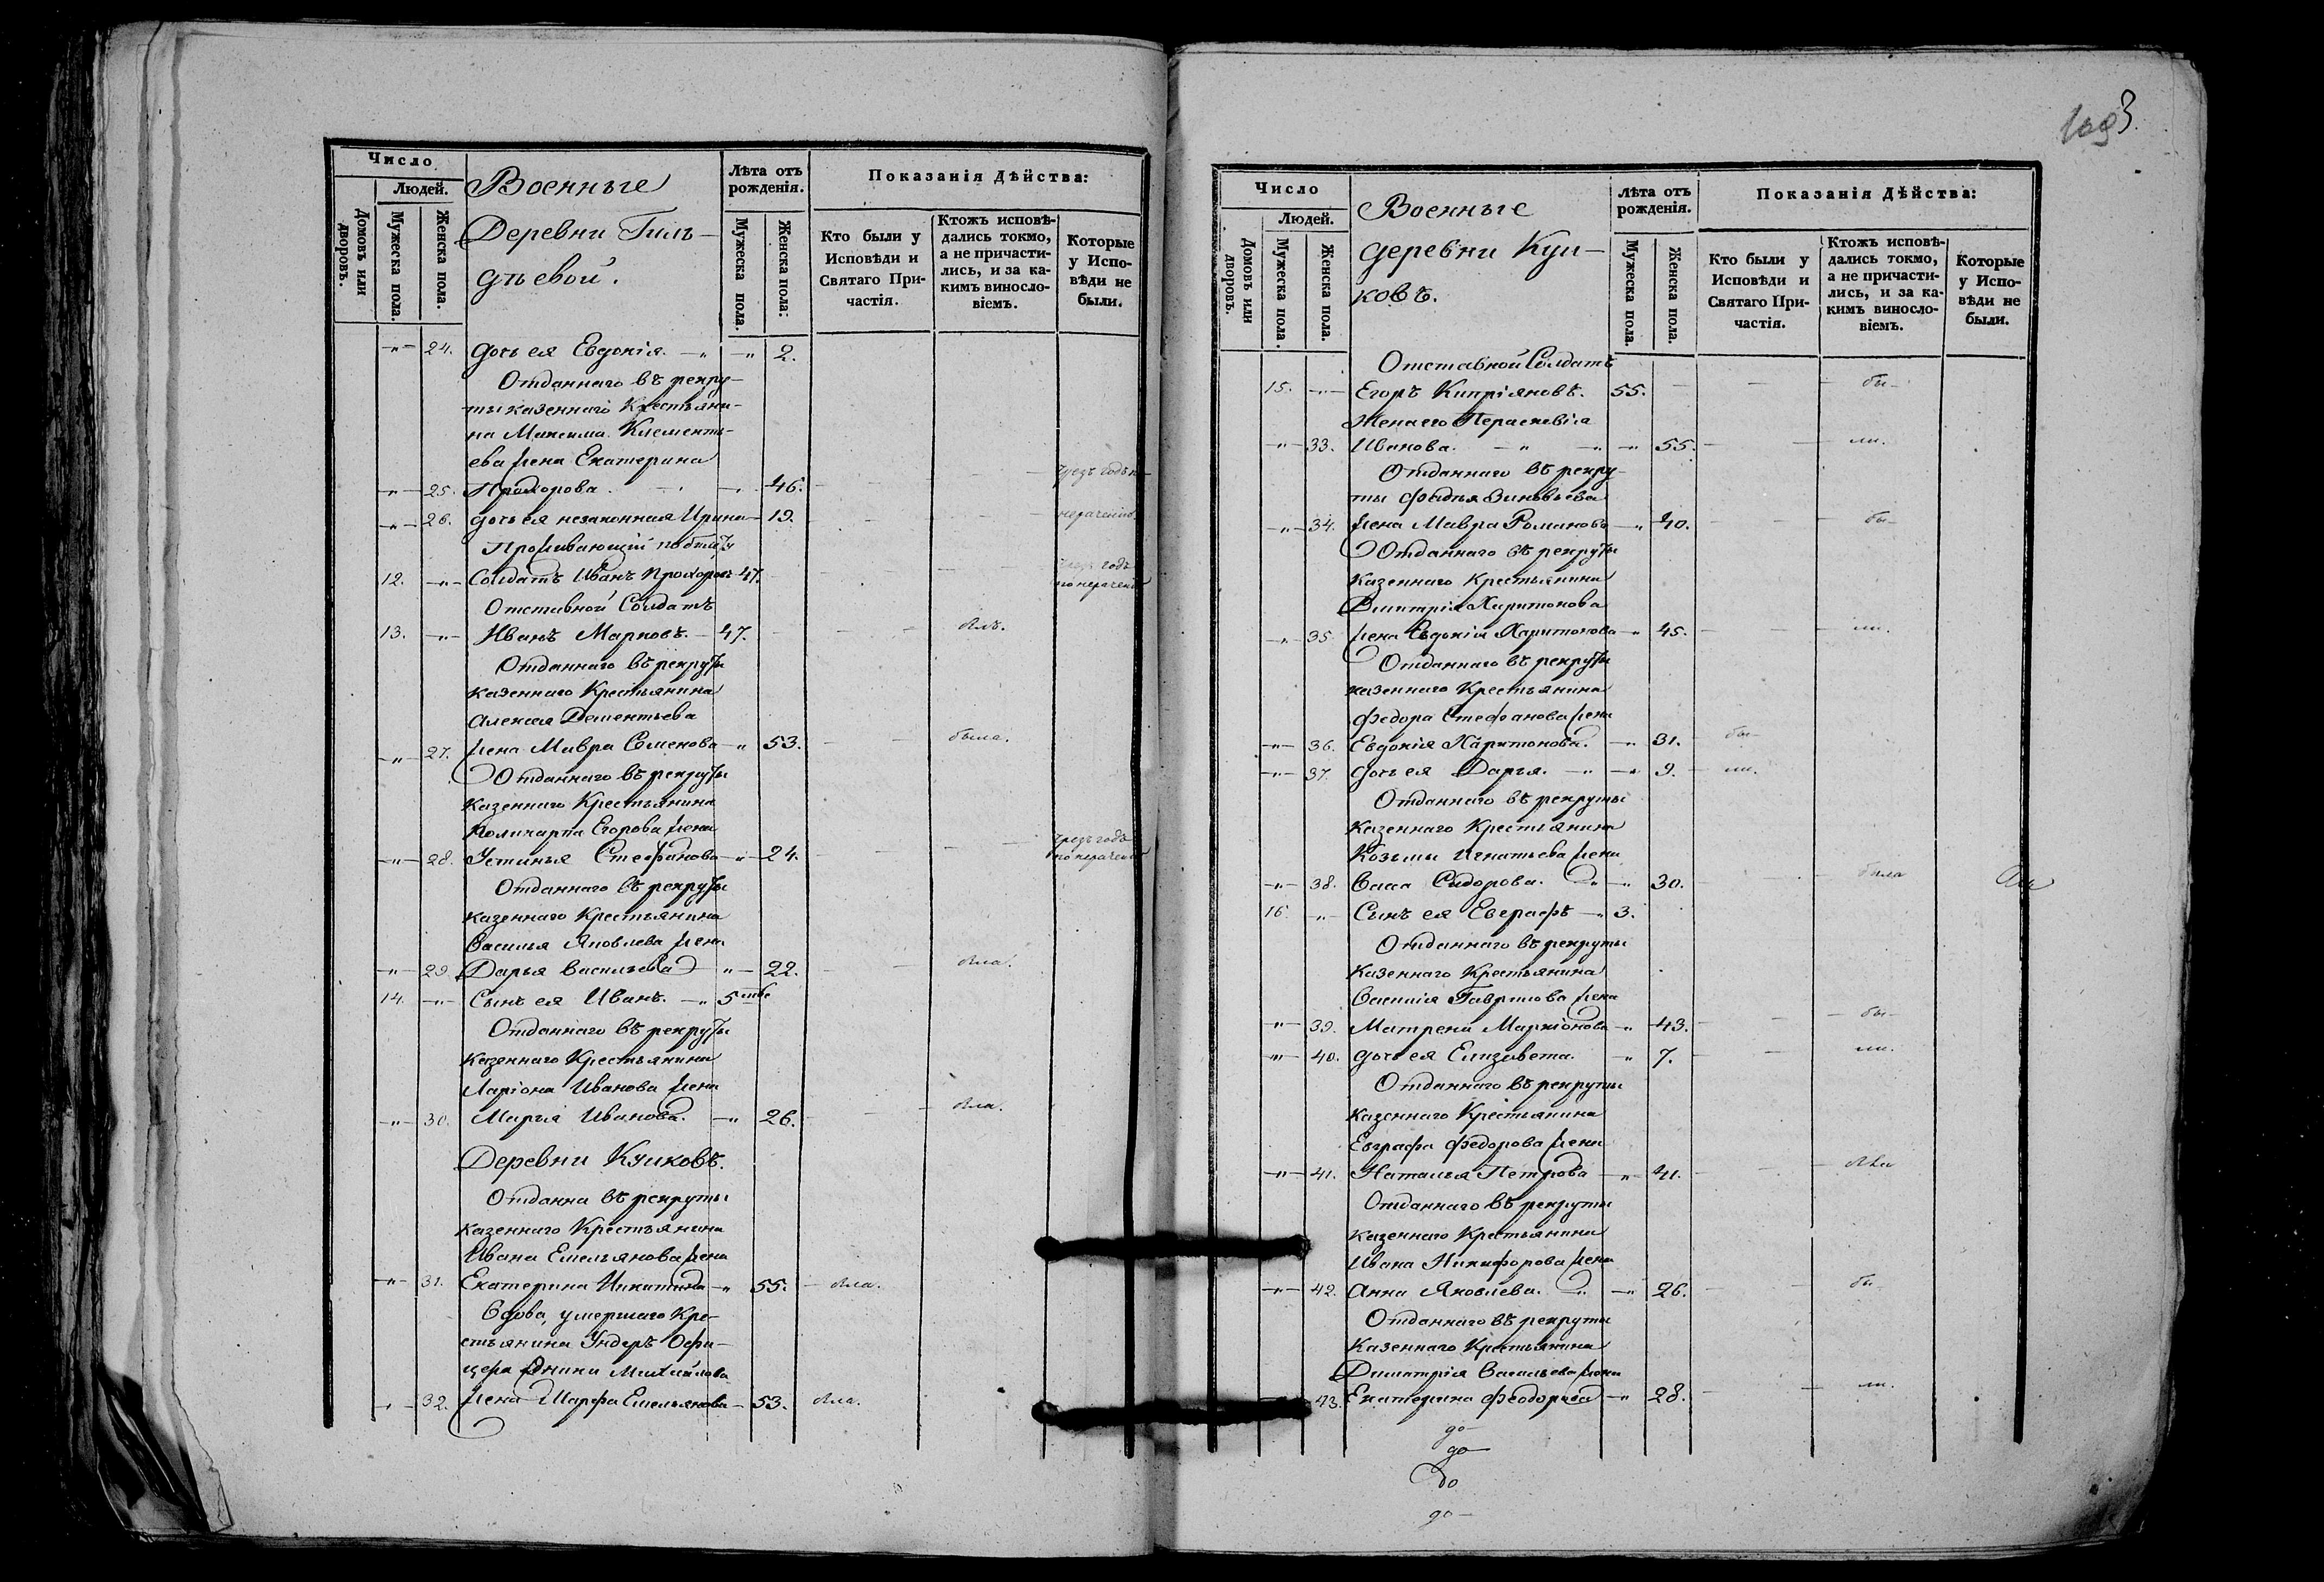 Число
Людей.
Домовъ или дворовъ.
Мужеска пола.
Женска пола.
Военные
Деревни Гиль-
дѣевой.
Лѣта отъ рожденія.
Мужеска пола.
Женска пола.
Показанія Дѣйства:
Кто были у Исповѣди и Святаго Причастія.
Ктожъ исповѣдались токмо, а не причастились, и за какимъ винословіемъ.
Которые у Исповѣди не были.
-"- 24. дочь ея Евдокія. -"- -"- 2.
Отданнаго въ рекру-
ты казеннаго Крестьяни-
на Максима Клементь-
ева жена Екатерина
-"- 25. Прохорова. 46. чрезъ годъ
-"- 26. дочь ея незаконная Ирина - 19.
Проживающій по билету
12. -"- Солдатъ Иванъ Прохоровъ 47. годъ по нерачению
Отставной Солдатъ
13. -"- Иванъ Марковъ. - 47. - - былъ.
Отданнаго въ рекруты
казеннаго Крестьянина
Алексея Дементьева
-"- 27. жена Мавра Семенова -"- 53. - - была.
Отданнаго въ рекруты
казеннаго Крестьянина
Поликарпа Егорова жена
-"- 28. Устинья Стефанова -"- 24. чрезъ годъ по нерачению
Отданнаго въ рекруты
казеннаго Крестьянина
Василья Яковлева жена
-"- 29. Дарья Васильева -"- 22. - - была.
14. -"- Сынъ ея Иванъ. -"- 5
Отданнаго въ рекруты
казеннаго Крестьянина
Ларіона Иванова жена
-"- 30. Марія Иванова. -"- 26. - - была.
Деревни Куиковъ.
Отданна въ рекруты
казеннаго Крестьянина
Ивана Емельянова жена
-"- 31. Екатерина Никитина -"- 55. - была.
Вдова, умершаго Кре-
стьянина Ундеръ Офи-
цера Михайлова
-"- 32. жена Марфа Емельянова - 53. была.
Число
Людей.
Домовъ или дворовъ.
Мужеска пола.
Женска пола.
Военные
деревни Куи-
ковъ.
Лѣта отъ рожденія.
Мужеска пола.
Женска пола.
Показанія Дѣйства:
Кто были у Исповѣди и Святаго Причастія.
Ктожъ исповѣдались токмо, а не причастились, и за какимъ винословіемъ.
Которые у Исповѣди не были.
Отставной Солдатъ
15. -"- Егоръ Кипріяновъ. 55. - - бы-
Жена его Параскевіа
-"- 33. Иванова. -"- -"- 55. - - ли.
Отданнаго въ рекру-
ты Фадѣя Зиновьева
-"- 34. жена Мавра Романова -"- 40. - - бы-
Отданнаго въ рекруты
Казеннаго Крестьянина
Димитрія Харитонова
-"- 35. жена Евдокія Харитонова -"- 45. - - ли.
Отданнаго въ рекруты
казеннаго Крестьянина
Федора Стефанова жена
-"- 36. Евдокія Харитонова. -"- 31. - бы-
-"- 37. дочь ея Дарья. -"- -"- 9. - ли.
Отданнаго въ рекруты
Казеннаго Крестьянина
Козьмы Игнатьева жена
-"- 38. Васса Сидорова. -"- 30. - - была
16. -"- Сынъ ея Евграфъ -"- 3.
Отданнаго въ рекруты
Казеннаго Крестьянина
Василія Гаврилова жена
-"- 39. Матрена Маркіонова -"- 43. - - бы-
-"- 40. дочь ея Елизавета. -"- 7. - - ли.
Отданнаго въ рекруты
Казеннаго Крестьянина
Евграфа Федорова жена
-"- 41. Наталья Петрова -"- 41. - - была
Отданнаго въ рекруты
казеннаго Крестьянина
Ивана Никифорова жена
-"- 42. Анна Яковлева. -"- 26. - - бы-
Отданнаго въ рекруты
Казеннаго Крестьянина
Димитрія Васильева жена
43. Екатерина Феодорова -"- 28. - - ли.
до-
до-
До
до-